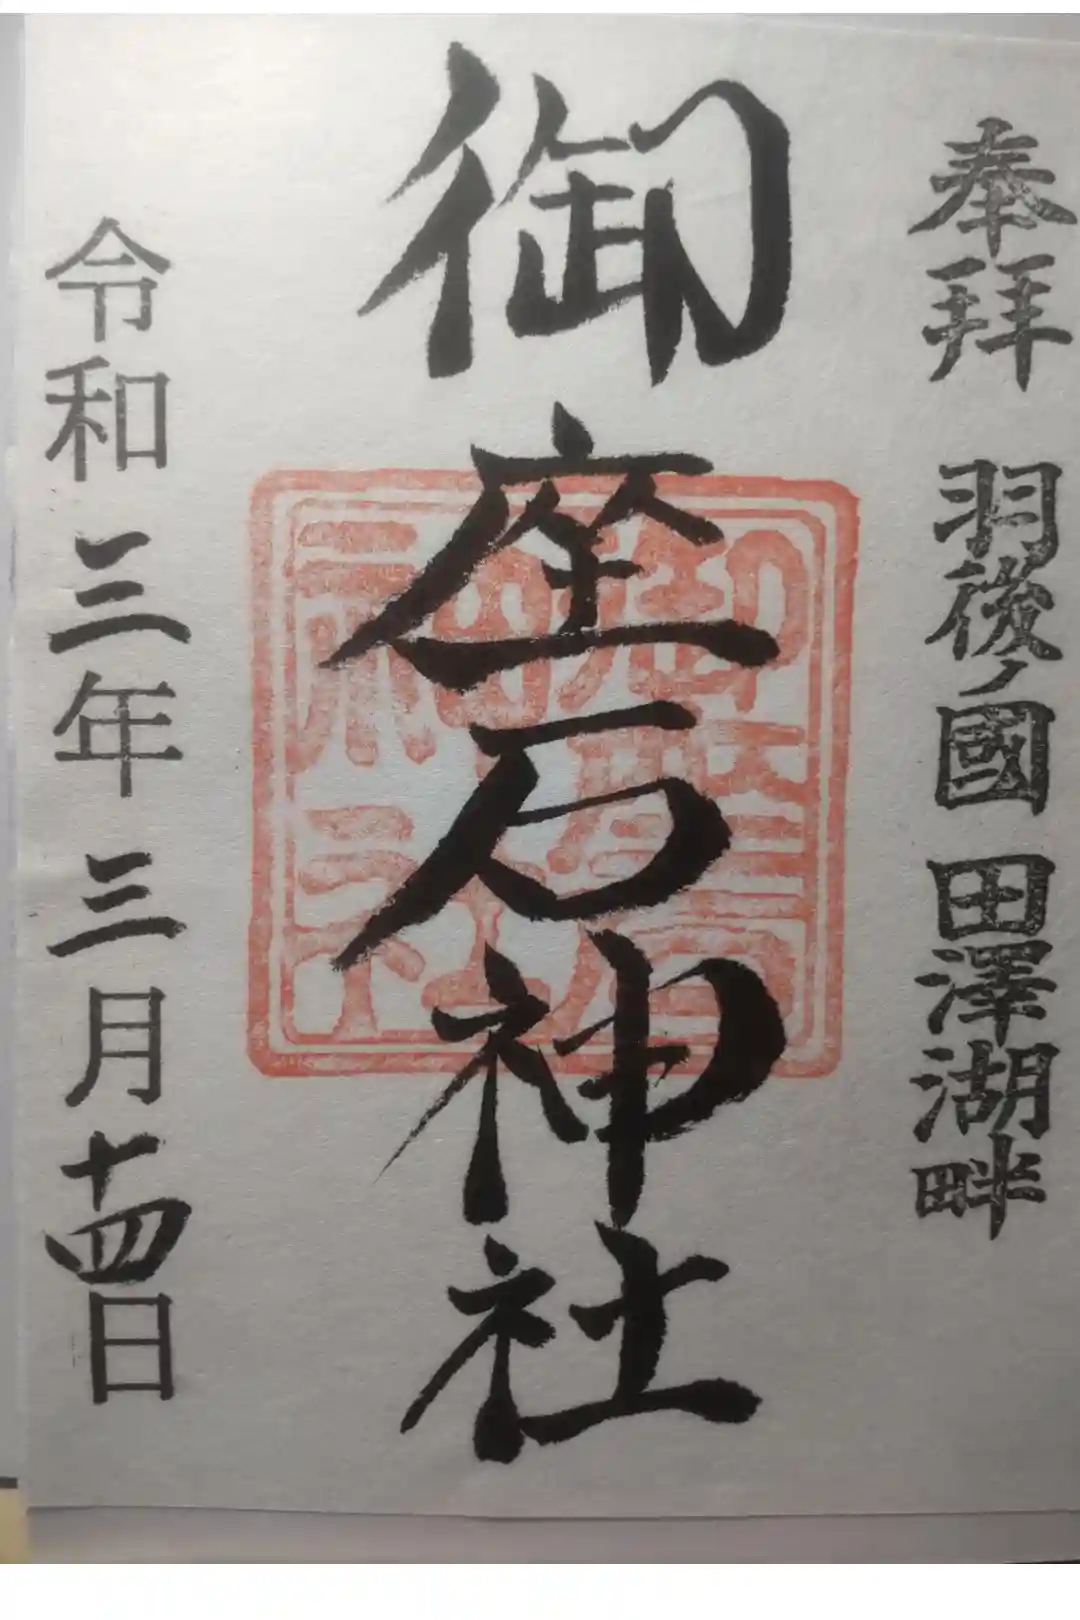 奉拜 羽後ノ國 田澤湖畔
御座石神社
令和三年三月十四日